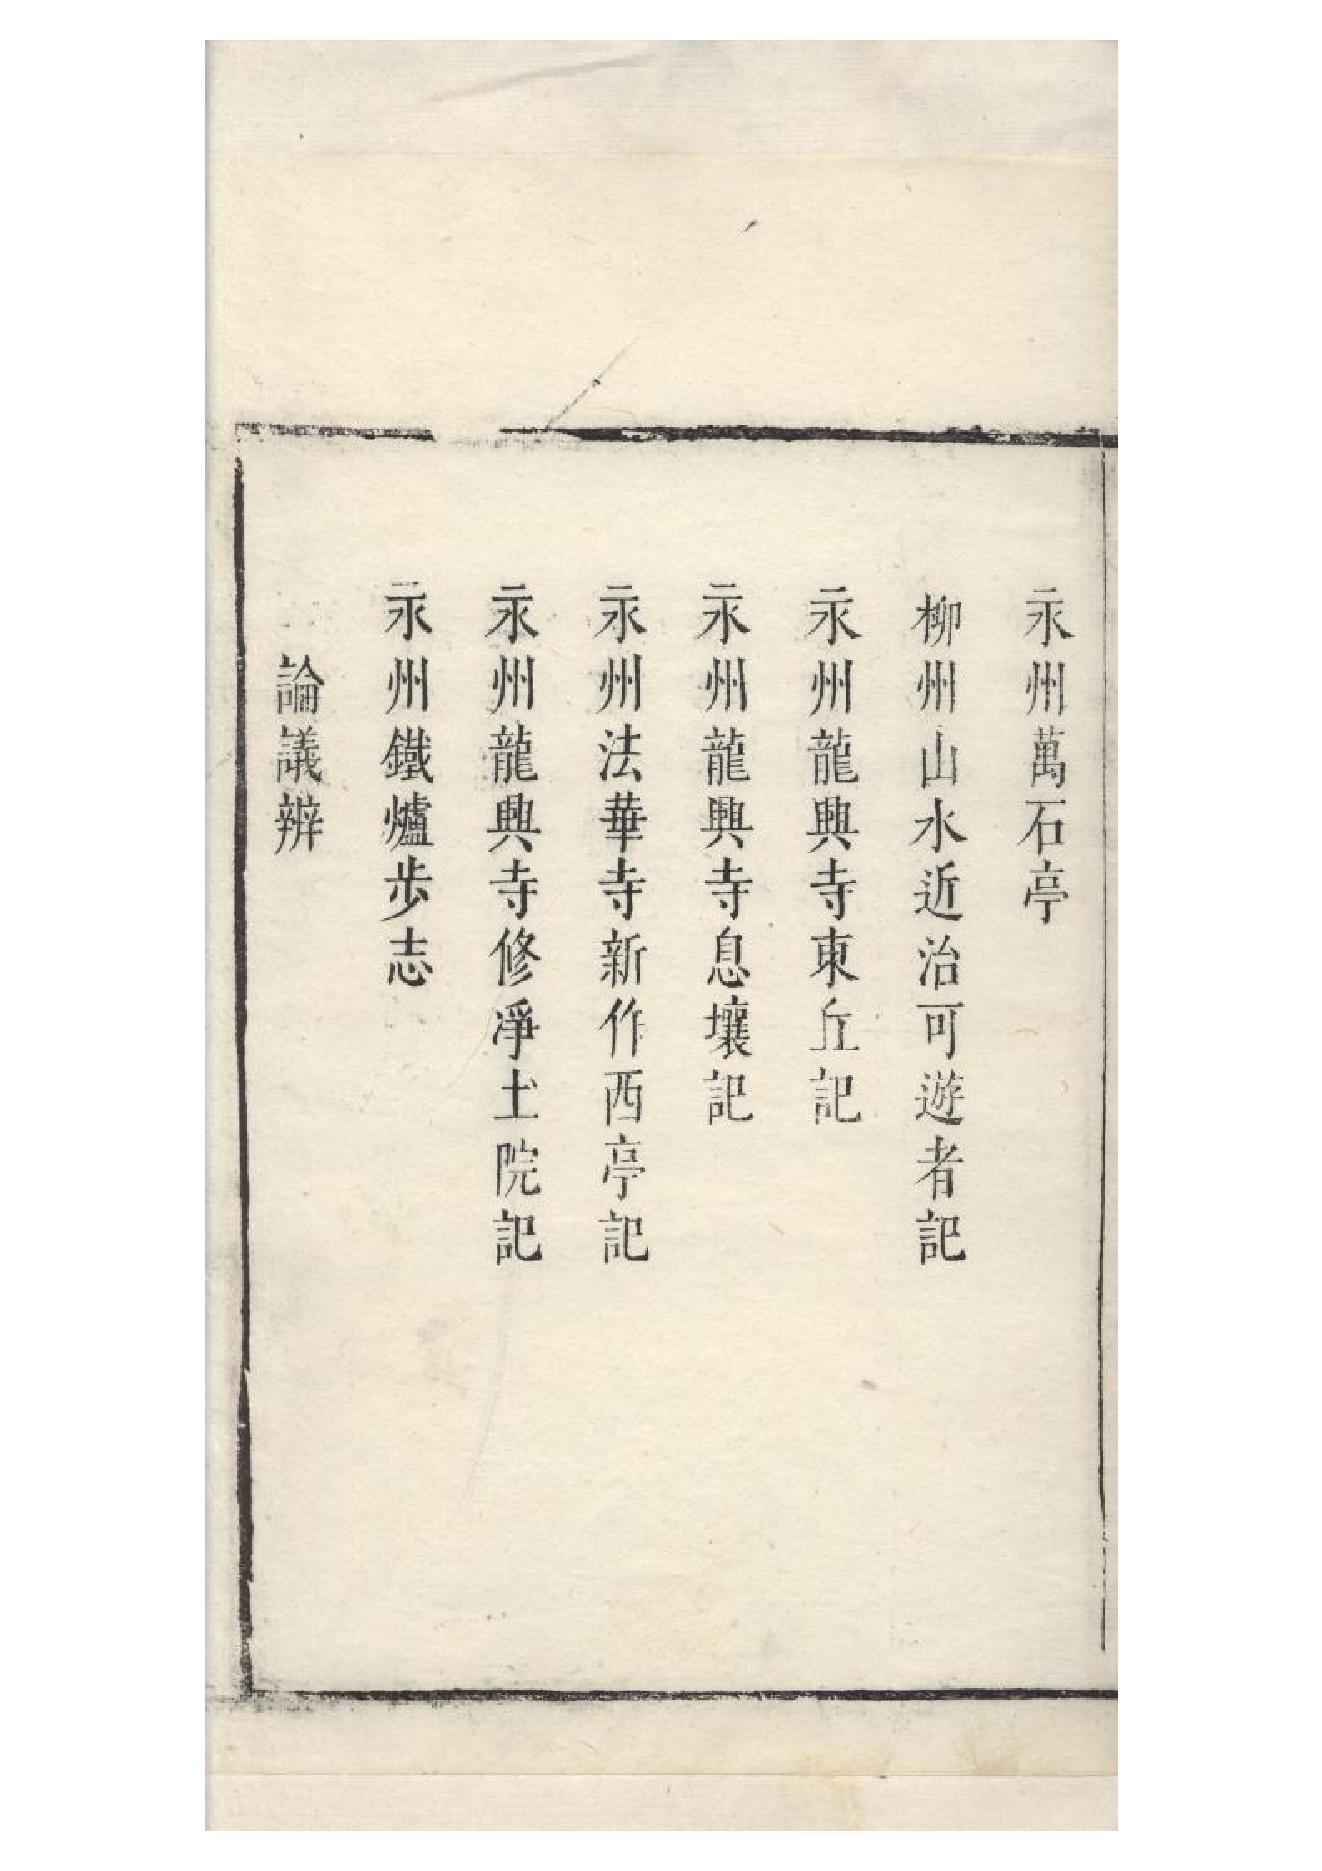 永州萬石亭
柳州山水近治可遊者記
永州龍興寺東丘記
永州龍興寺息壤記
永州法華寺新作西亭記
永州龍興寺修凈土院記
永州鐵爐步志
論議辨